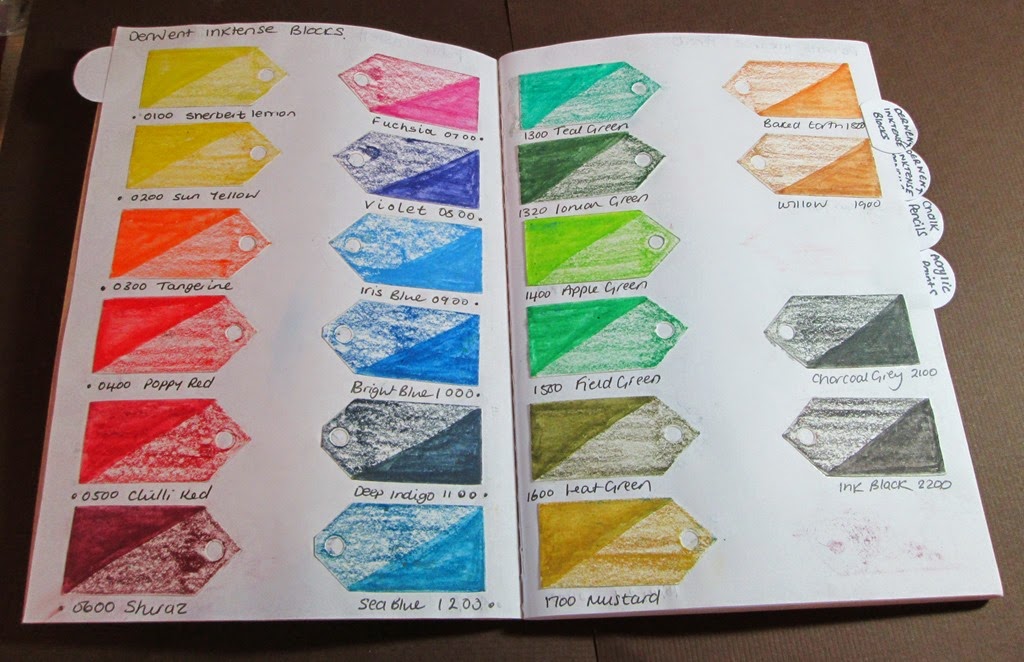 Derwent Inktense Blocks.
• 0100 Sherbert lemon
• 0200 Sun Yellow
• 0300 Tangerine
• 0400 Poppy Red
• 0500 Chilli Red
• 0600 Shiraz
Fuchsia 0700 •
Violet 0800 •
Iris Blue 0900 •
Bright Blue 1000 •
Deep Indigo 1100 •
Sea Blue 1200 •
1300 Teal Green
1320 Ionian Green
1400 Apple Green
1500 Field Green
1600 Leaf Green
1700 Mustard
Baked Earth 1800
Willow 1900
Charcoal Grey 2100
Ink Black 2200
DERWENT
INKTENSE
BLOCKS
DERWENT
INKTENSE
Chalk
Pencils
Acrylic
paints